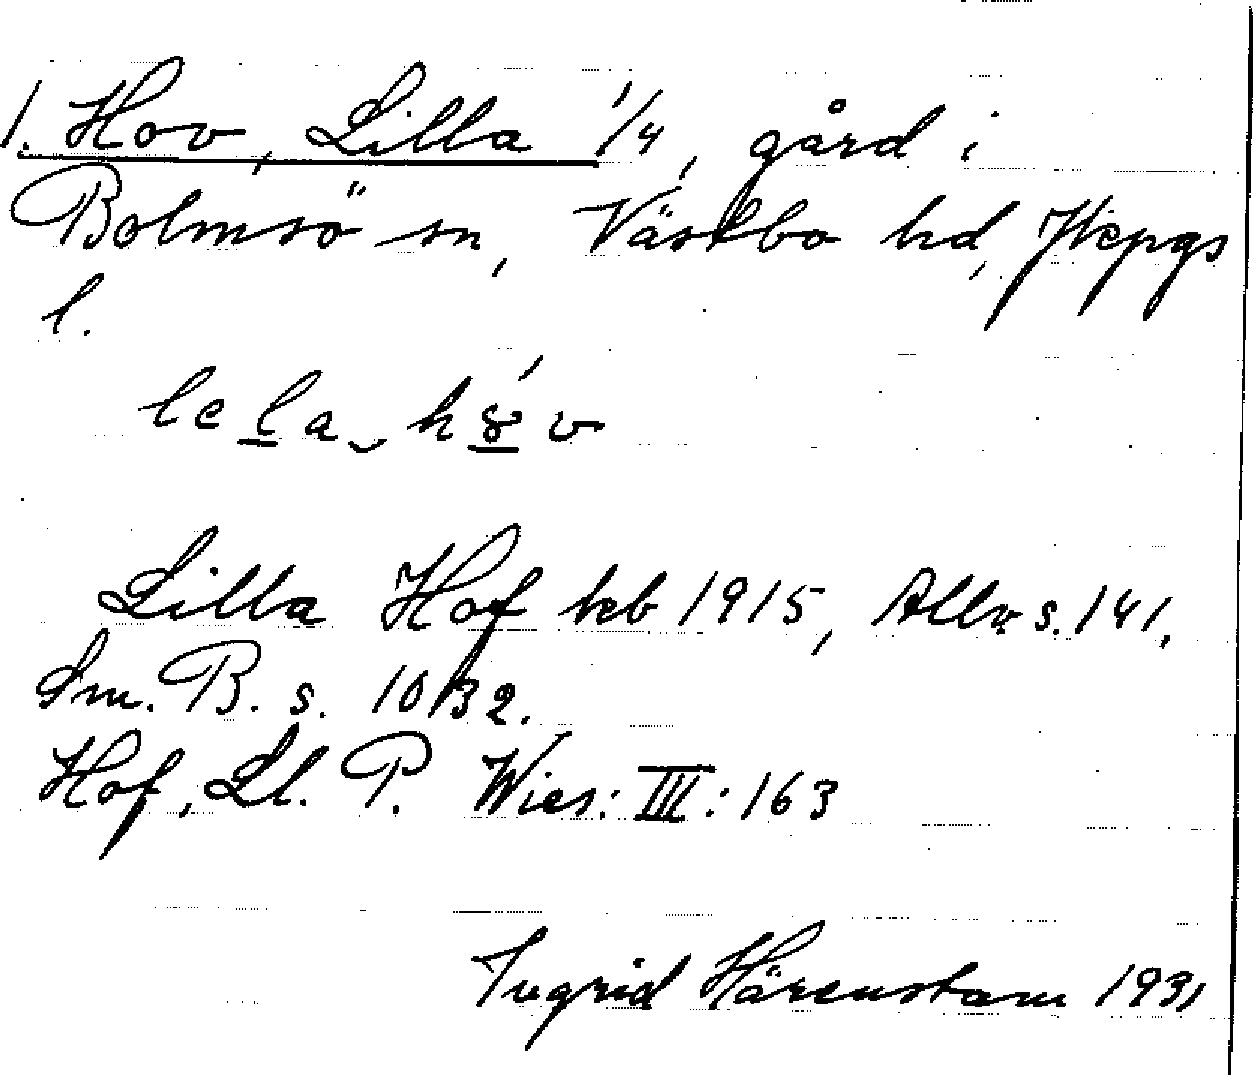 1. Hov, Lilla 1/4, gård i
Bolmsö sn, Västbo hd, Jköpgs
l.
Lilla Hof hcb 1915, Allv s. 141,
Sm. B. s. 1032.
Hof, Ll. P. Wies: III: 163
Ingrid Härenstam 1931